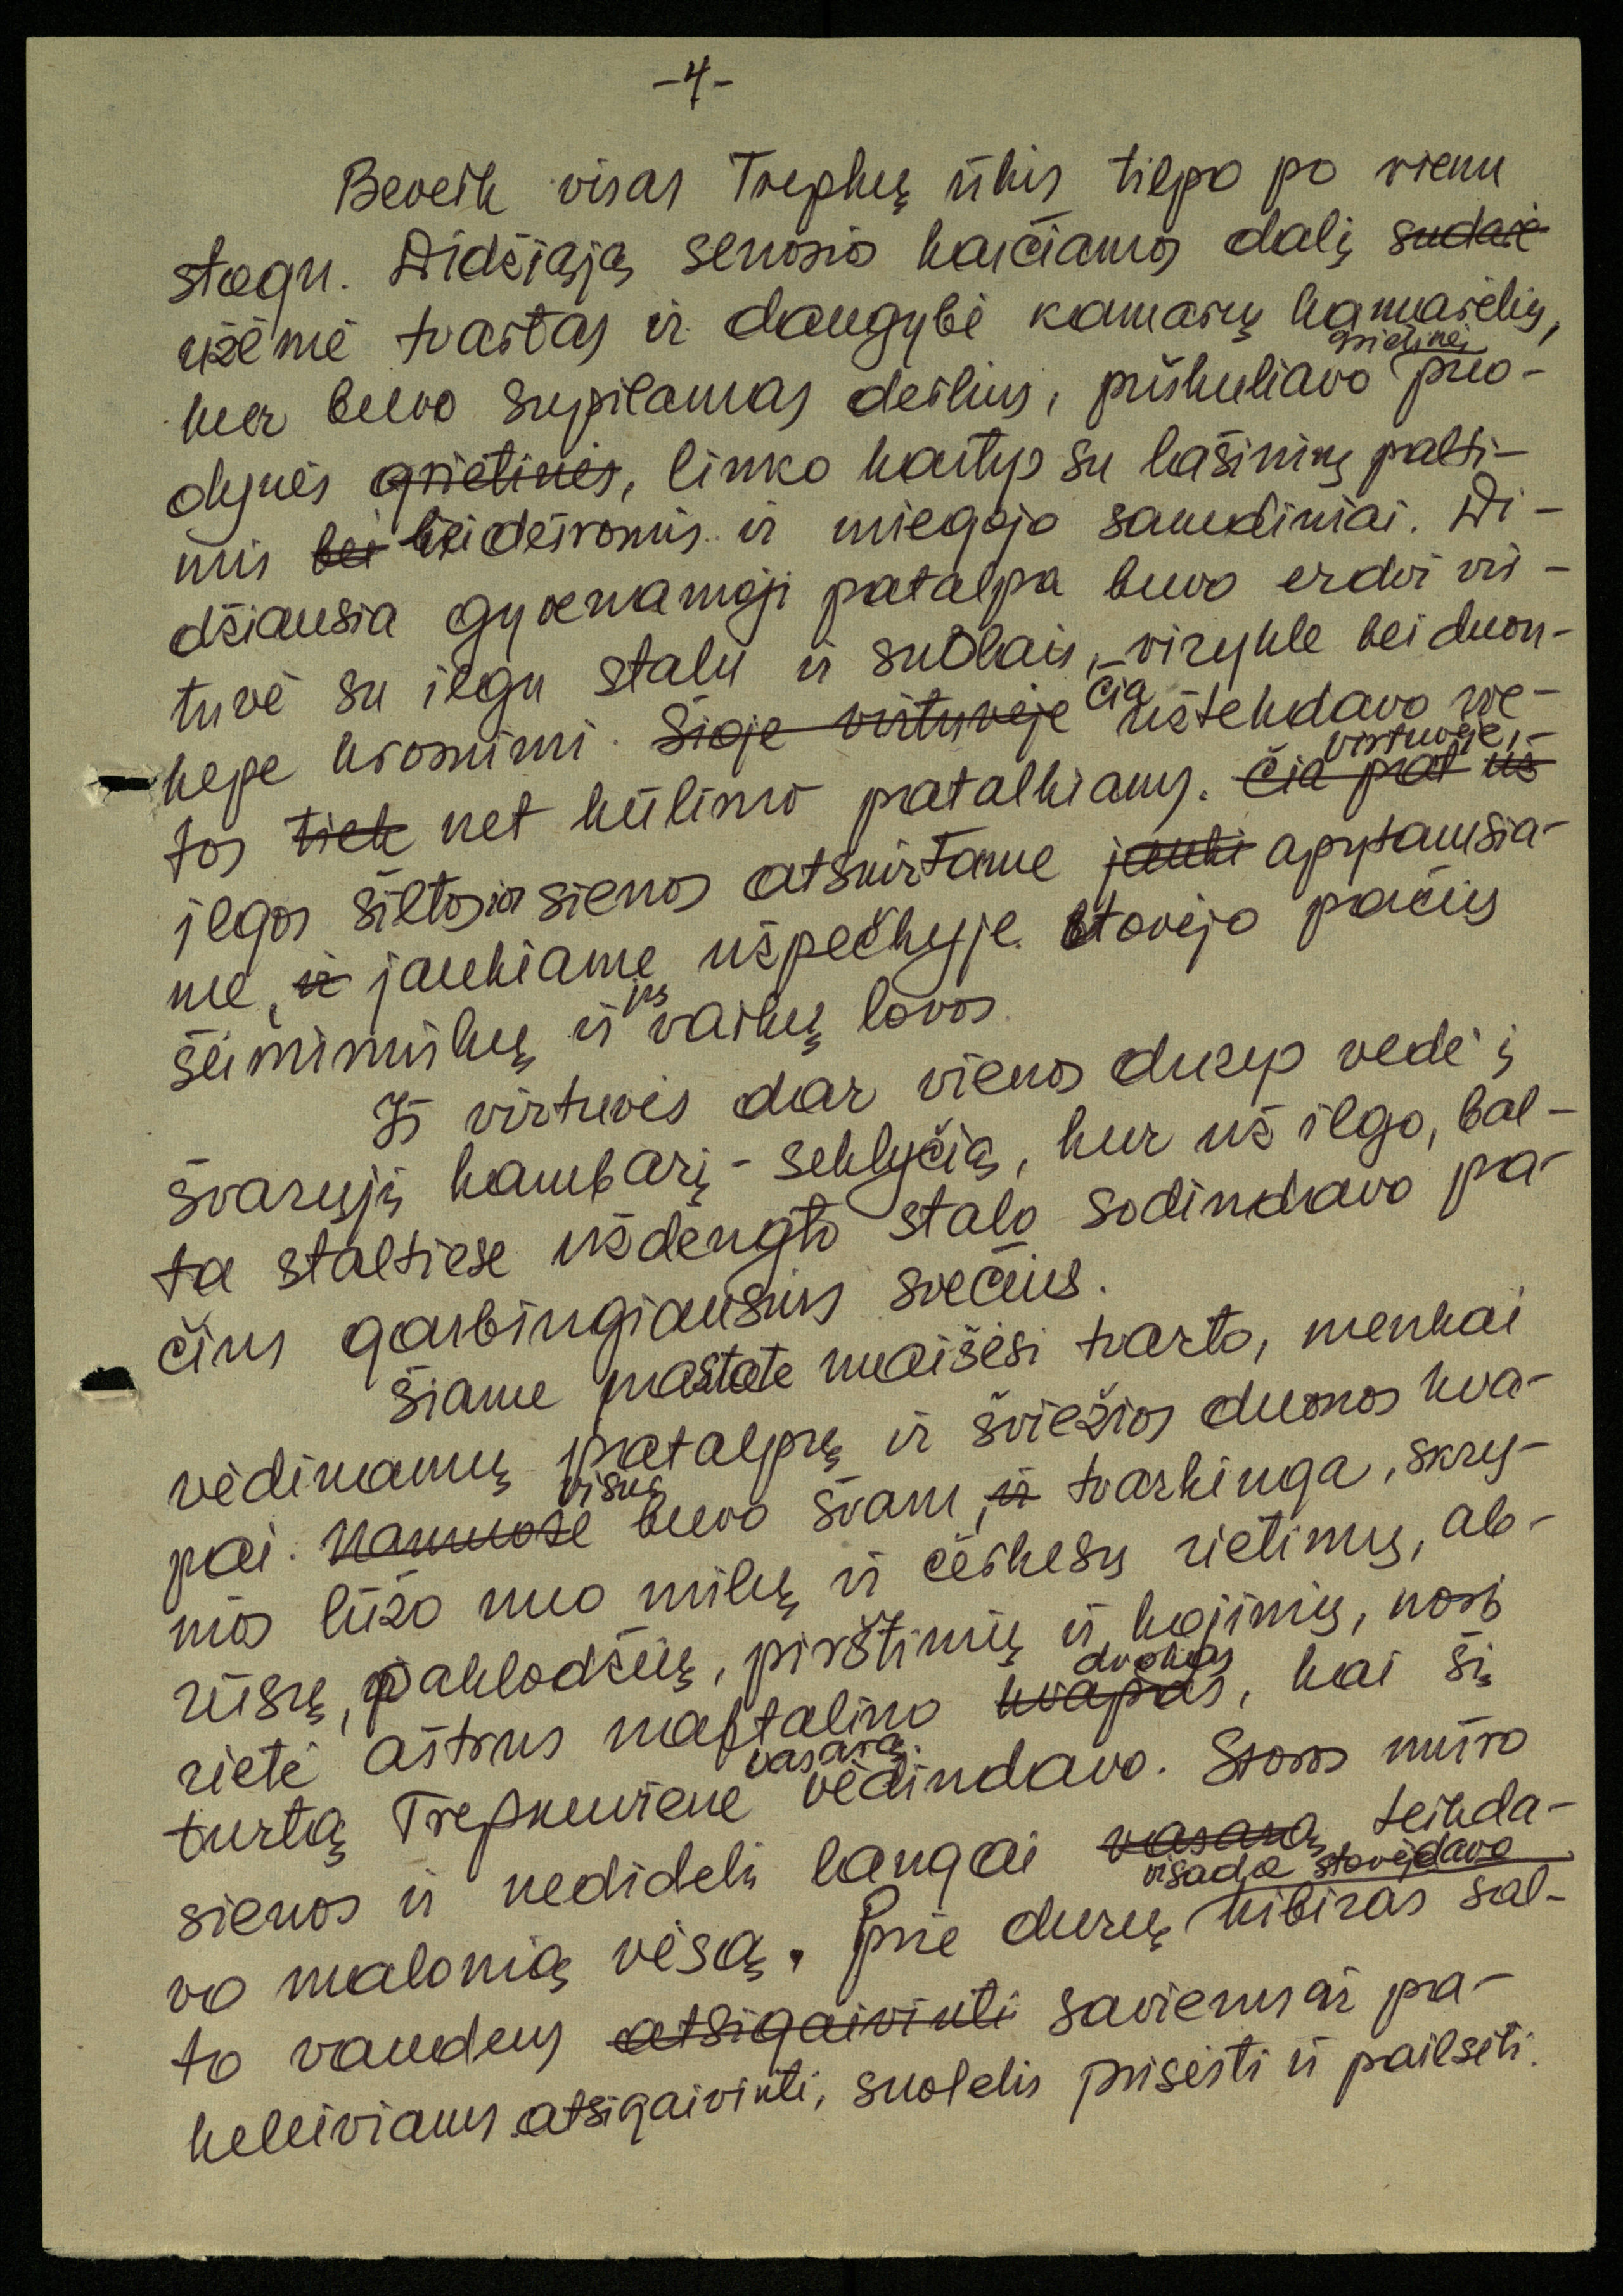 -4-
Beveik visas Trepkų ūkis tilpo po vienu
stogu. Didžiąją senosio karčiamos dalį sudarė
užėmė tvartas ir daugybė kamarų kamarėlių,
grietinei
kur buvo supilamas derlius, prišuliavo puo-
dynės grietinės, linko kartys su lašinių palti-
mis bei bei dešromis ir miegojo samdiniai. Di-
džiausia gyvenamoji patalpa buvo erdvi vir-
tuvė su ilgu stalu ir suolais, virykle bei duon-
kepe krosnimi. Šioje virtuvėje čia užtekdavo vie-
virtuvėje,-
tos tiek net kūlimo patalkiams. Čia pat už
ilgos šiltosios sienos atskirtame jauki apytamsia-
me, ir jaukiame užpečkyje stovėjo pačių
šeimininkų ir jų vaikų lovos.
Iš virtuvės dar vienos durys vedė į
švarųjį kambarį - seklyčią, kur už ilgo, bal-
ta staltiese uždengto stalo sodindavo pa-
čius garbingiausius svečius.
Šiame pastate maišėsi tvarto, menkai
vėdinamų patalpų ir šviežios duonos kva-
visur
pai. Namuose buvo švaru, ir tvarkinga, skry-
nios lūžo nuo milų ir čerkesų rietimų, ab-
rūsų, paklodžių, pirštinių ir kojinių, nosį
dvokas
rietė aštrus naftalino kvapas, kai šį
vasarą
turtą Trepkuvienė vėdindavo. Storos mūro
sienos ir nedideli langai vasarą teikda-
visada stovėjdavo
vo malonią vėsą. Prie durų kibiras šal-
to vandens atsigaivinti saviems ar pa-
keleiviams atsigaivinti, suolelis prisėsti ir pailsėti.